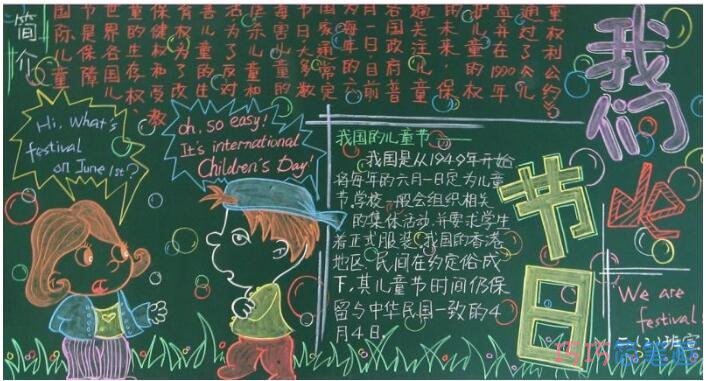 简介
国际儿童
节是保障
世界各国儿
童的生存权、
保健权和受教
育权为了改
善儿童的生
活为了反对
儿童和
毒害儿童的
节日大多数
国家通常定
为每年的六
月一日.目前
各国政府普
遍关注儿童
的未来.保
护儿童的权
并在1990年
通过了《儿
童权利公约》
Hi, What's
festival
on June 1st?
oh, so easy!
It's international
Children's Day!
我国的儿童节
我国是从1949年开始
将每年的六月一日定为儿童
节.学校一般会组织相关
的集体活动,并要求学生
着正式服装.我国的香港
地区.民间在约定俗成
下,其儿童节时间仍保
留与中华民国一致的4
月4日.
我们
节日
We are
festival!